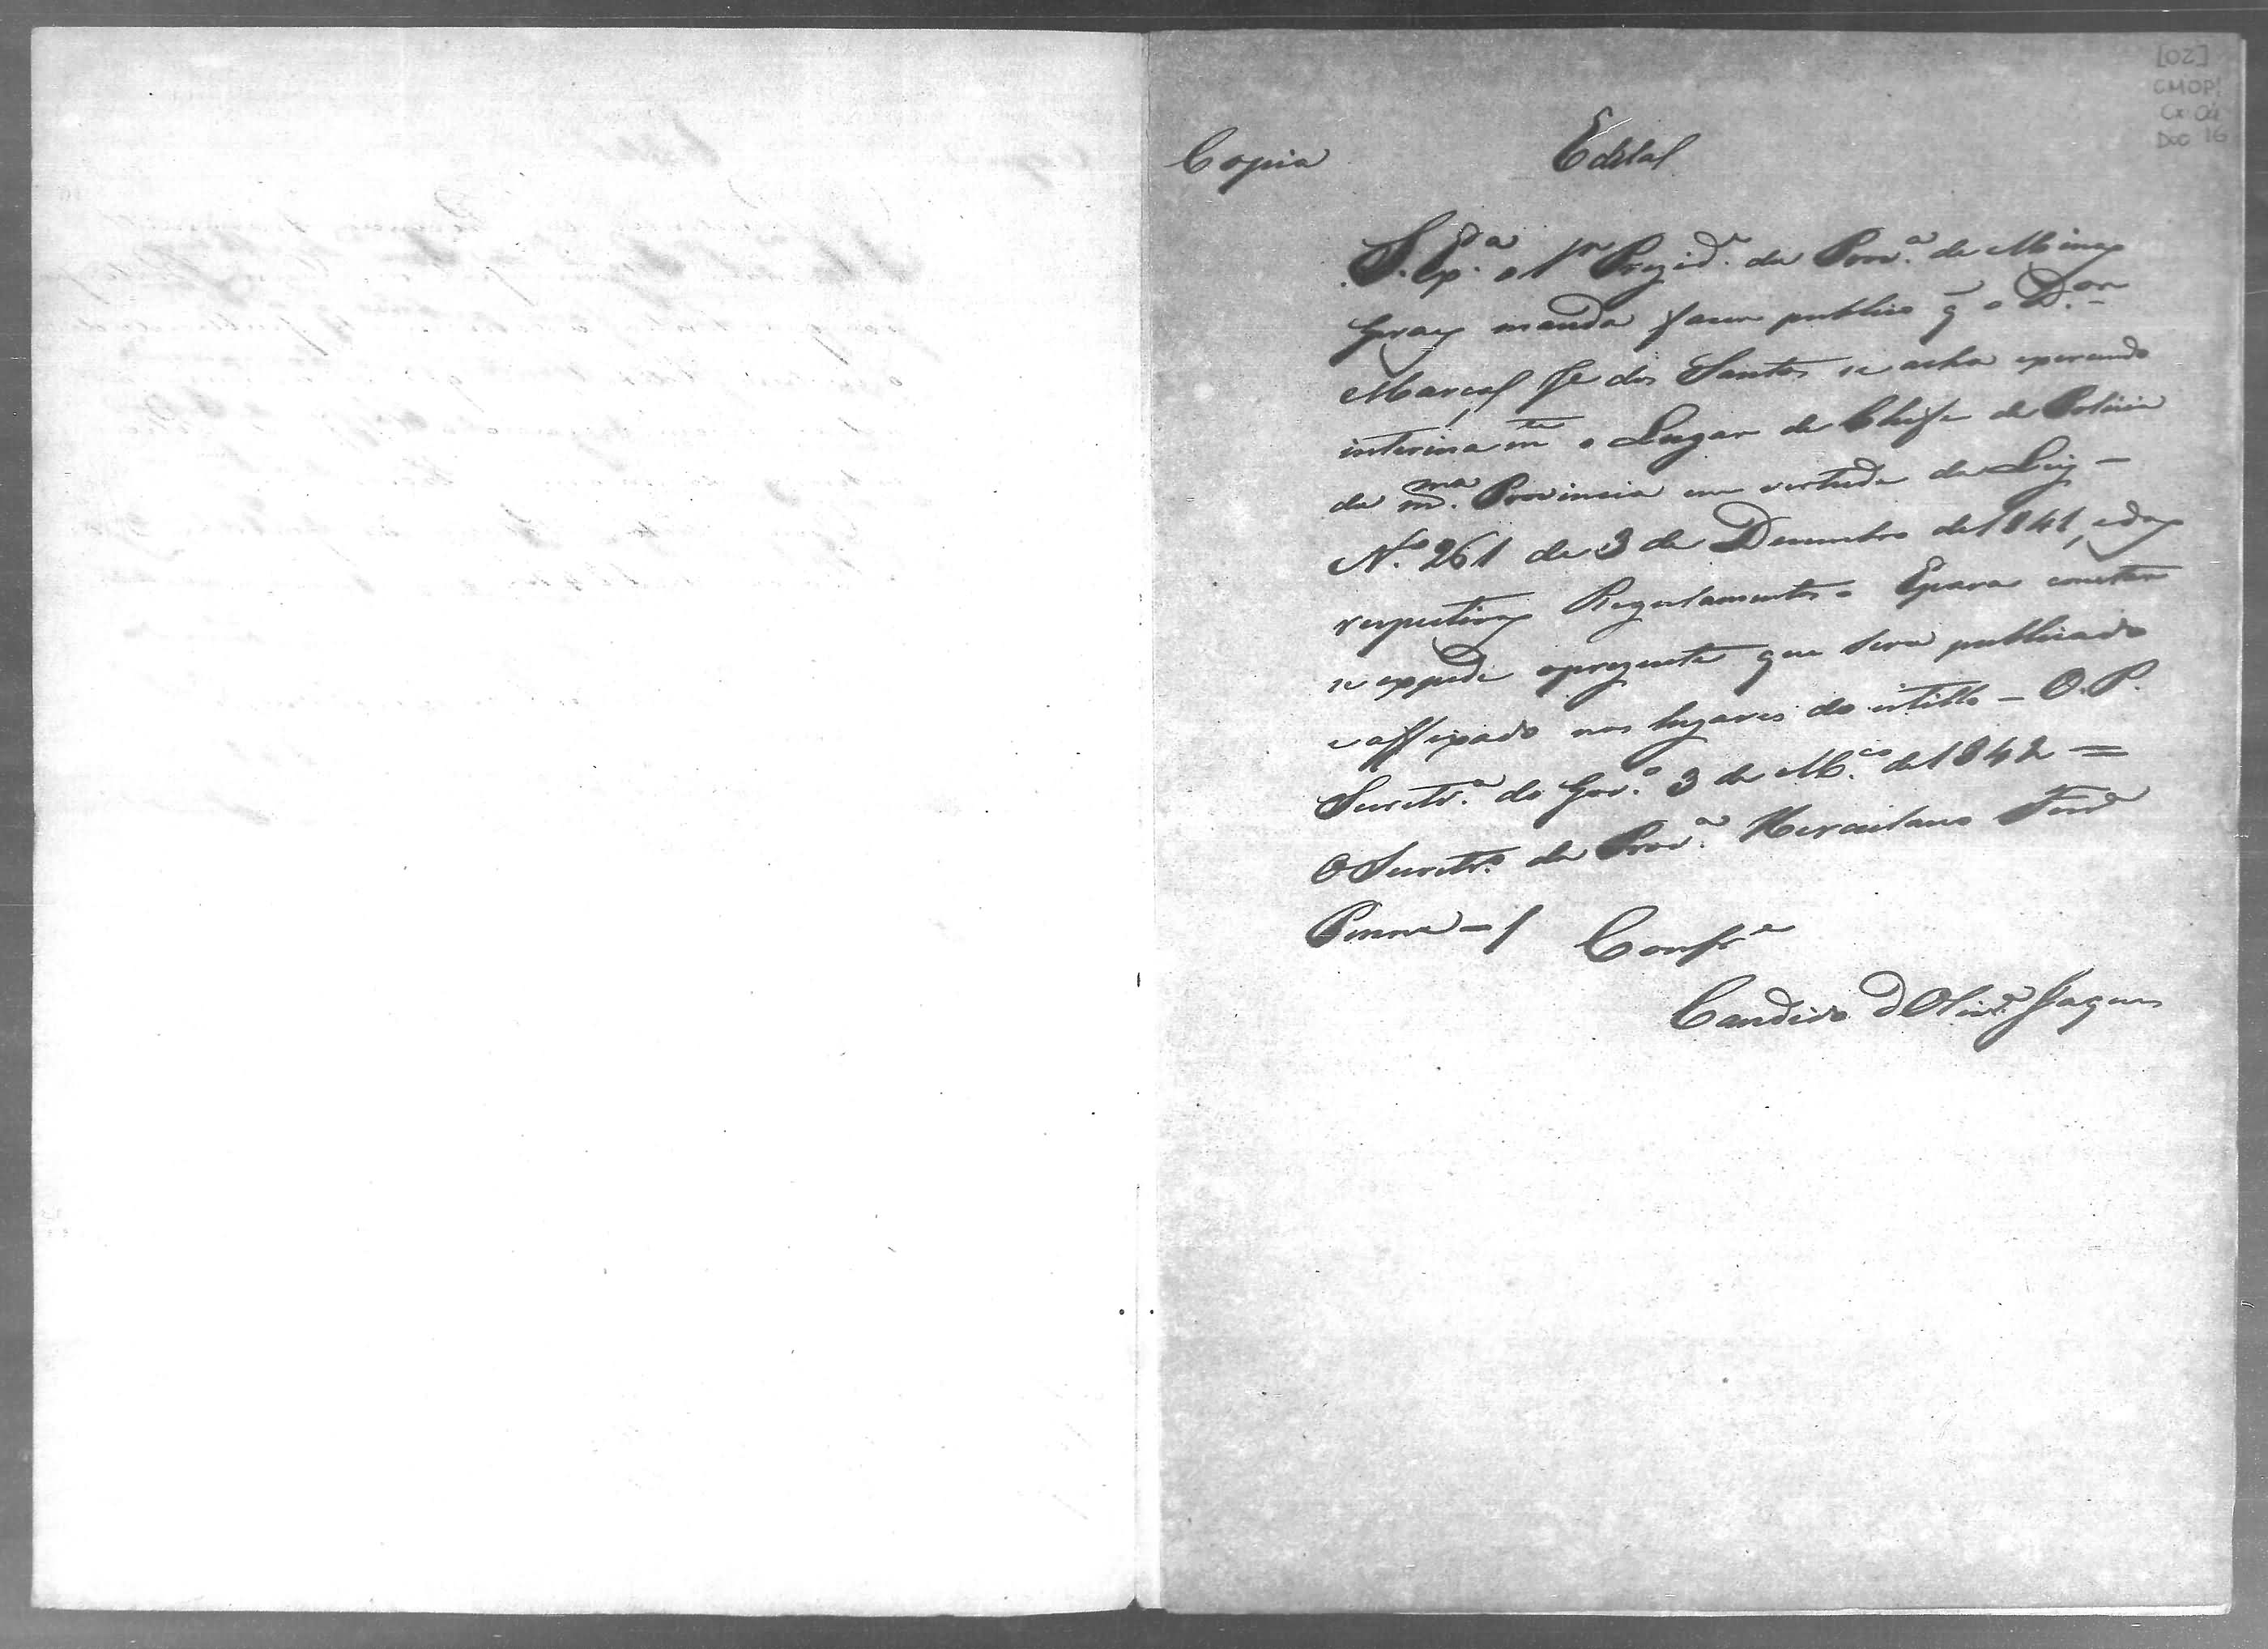 [02]
CMOP
Cx 04
Doc 16
Copia Edital
S. Ex.ª o Sr Prezid.e da Prov.ª de Minas
Geraes manda fazer publico q̃ o D.or
Marçal Je dos Santos se acha exercendo
interina m.te o Lugar de Chefe de Policia
da m.ma Provincia em vertude da Ley -
N.º 261 de 3 de Dezembro de 1841, e dos
respectivos Regulamentos = E para constar
se expede o prezente que sera publicado
e affixado nos lugares do estillo - O. P.
Secretr.ª do Gov.º 3 de M.ço de 1842 =
O Secretr.º da Prov.ª Herculano Ferr.ª
Penna - /
Confr.e
Candido d Olivr.ª Jaques